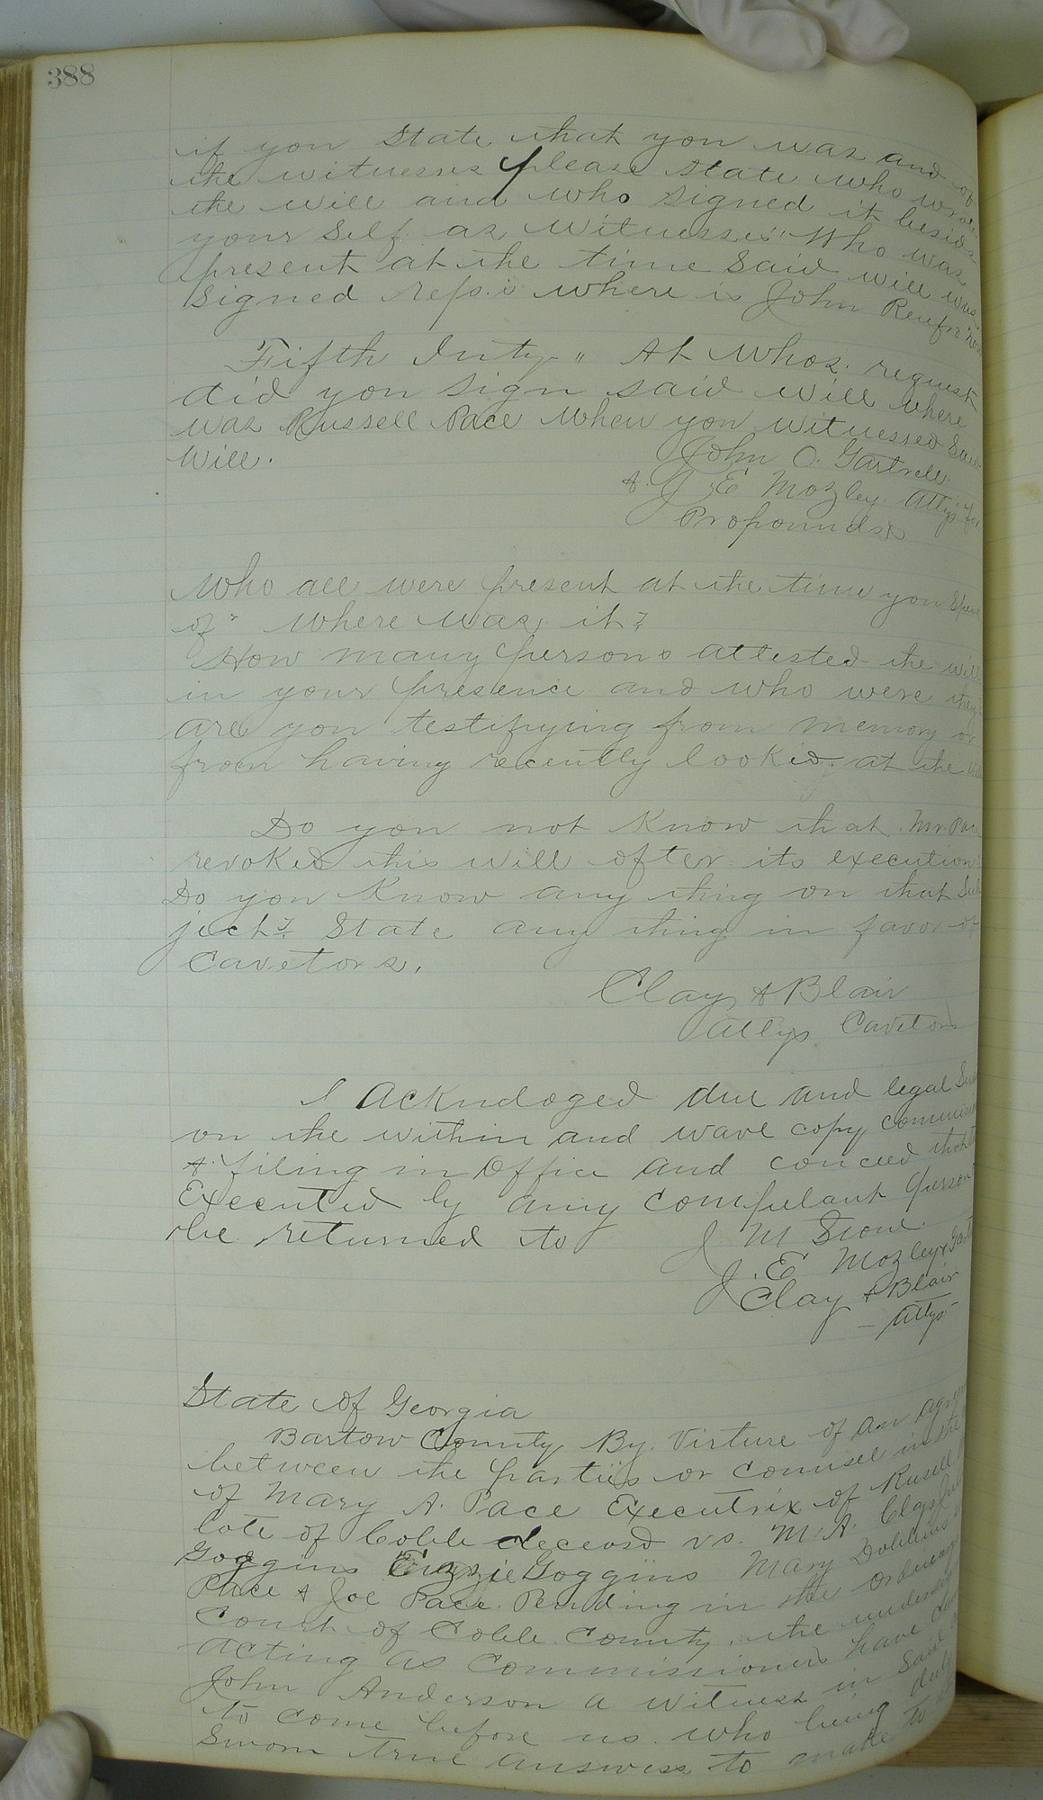 388
if you State that you was and of
the witnesses please State who wrote
the will and who signed it beside
your Self as witnesses" Who was
present at the time Said will was
signed reps. where is John
Fifth Inty " At whos request
did you sign said will where
was Russell Pace when you witnessed Said
will.
John O. Gartrell
& J. E Mozley Attys for
Propounds
Who all were present at the time you Speak
of" where was it?
How many persons attested the will
in your presence and who were they
are you testifying from memory or
from having recently looked at the will
Do you not Know that Mr. Pace
revoked this will after its execution
Do you Know any thing on that Sub
ject? State any thing in favor of
Cavetors.
Clay & Blair
Attys Cavetors
I Ackndoged due and legal
on the within and wave copy
& filing in Office and conced that
Executed by any compelant person
be returned to
J M Stone
J. E Mozley &
Clay & Blair
Attys
State of Georgia
Bartow County By. Virture of an
between the parties or counsel in the
of Mary A. Pace Executrix of Rusell
late of Cobb deceasd vs. M. A.
Goggins Goggins Mary Dobbins
Pace & Joe Pace Pending in the Ordinary
Court of Cobb County, the
acting as Commissioners have
John Anderson a Witness in Said
to come before us who being duly
Sworn true answers to make to